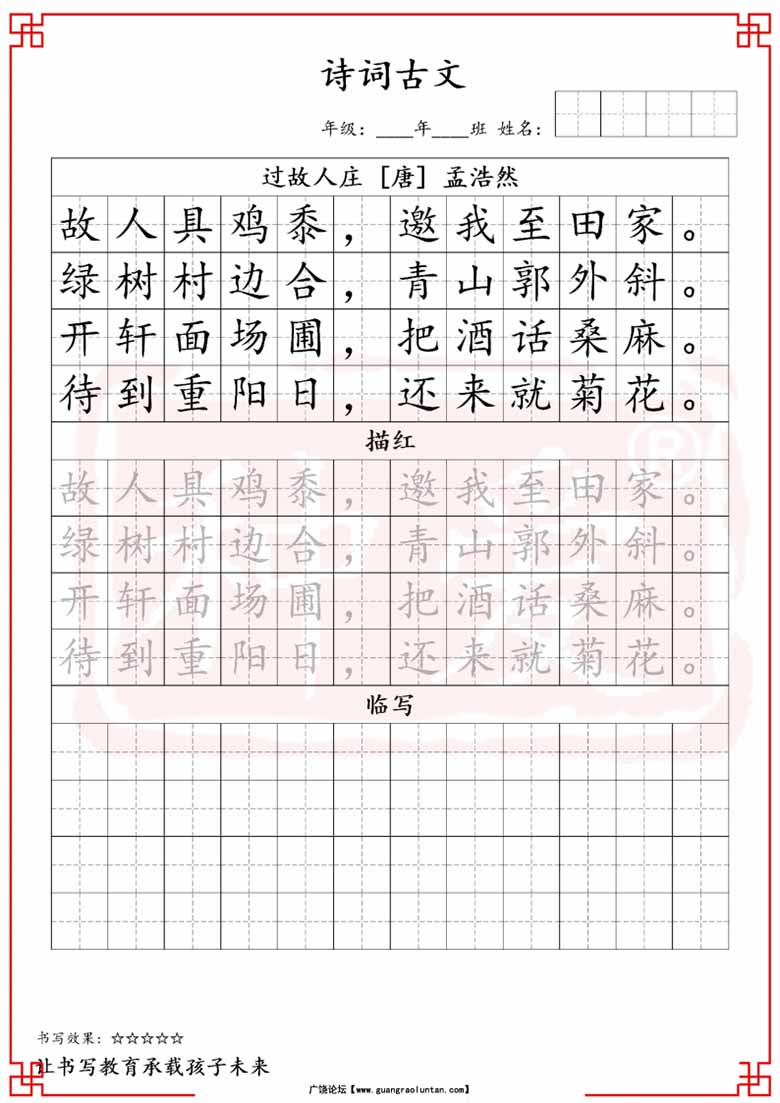 诗词古文
年级：____年____班 姓名：
过故人庄 [唐] 孟浩然
故人具鸡黍，邀我至田家。
绿树村边合，青山郭外斜。
开轩面场圃，把酒话桑麻。
待到重阳日，还来就菊花。
描红
故人具鸡黍，邀我至田家。
绿树村边合，青山郭外斜。
开轩面场圃，把酒话桑麻。
待到重阳日，还来就菊花。
临写
书写效果：☆☆☆☆☆
让书写教育承载孩子未来
广饶论坛【www.guangraoluntan.com】